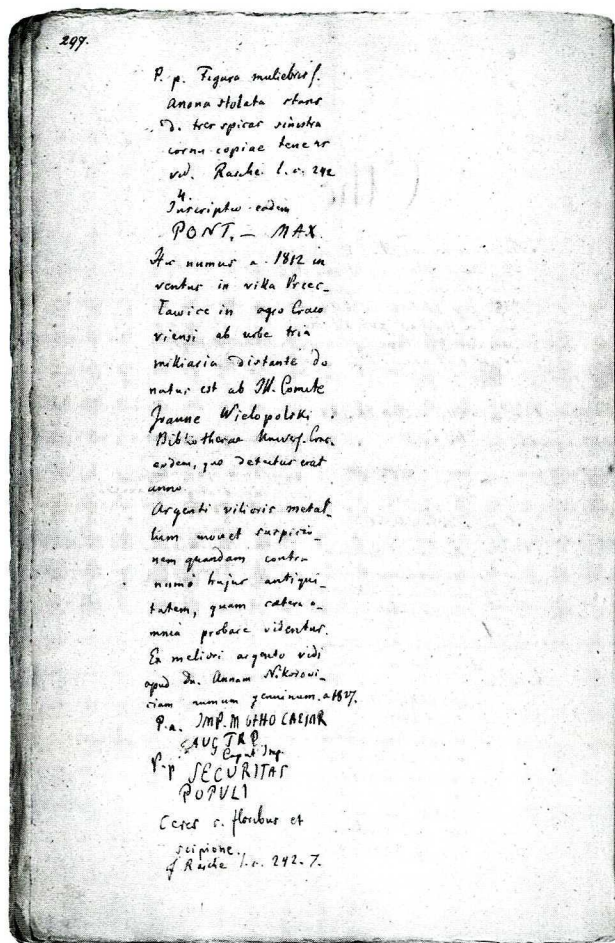 297.
P. p. Figura muliebris s.
Anona stolata stans
d. tres spicas sinistra
cornu copiae tenens
vid. Rasche l. c. 242
4.
Inscriptio eadem
PONT. – MAX.
Hic numus a. 1812 in
ventus in villa Przec–
ławice in agro Craco
viensi ab urbe tria
milliaria distante do
natus est ab Ill. Comite
Joanne Wielopolski
Bibliothecae Univers. Crac.
eodem, quo detectus erat
anno.
Argenti vilioris metal–
lum movet suspicio–
nem quandam contra
numo hujus antiqui–
tatem, quam caetera o–
mnia probare videntur.
Ex meliori argento vidi
apud dn. Annam Nikorowi–
ciam numum genuinum. a 1827.
P. a. IMP. M OTHO CAESAR
AUG TRP
Caput Imp.
P. p SECURITAS
POPULI
Ceres c. floribus et
scipione.
cf Rasche l. c. 242. 7.